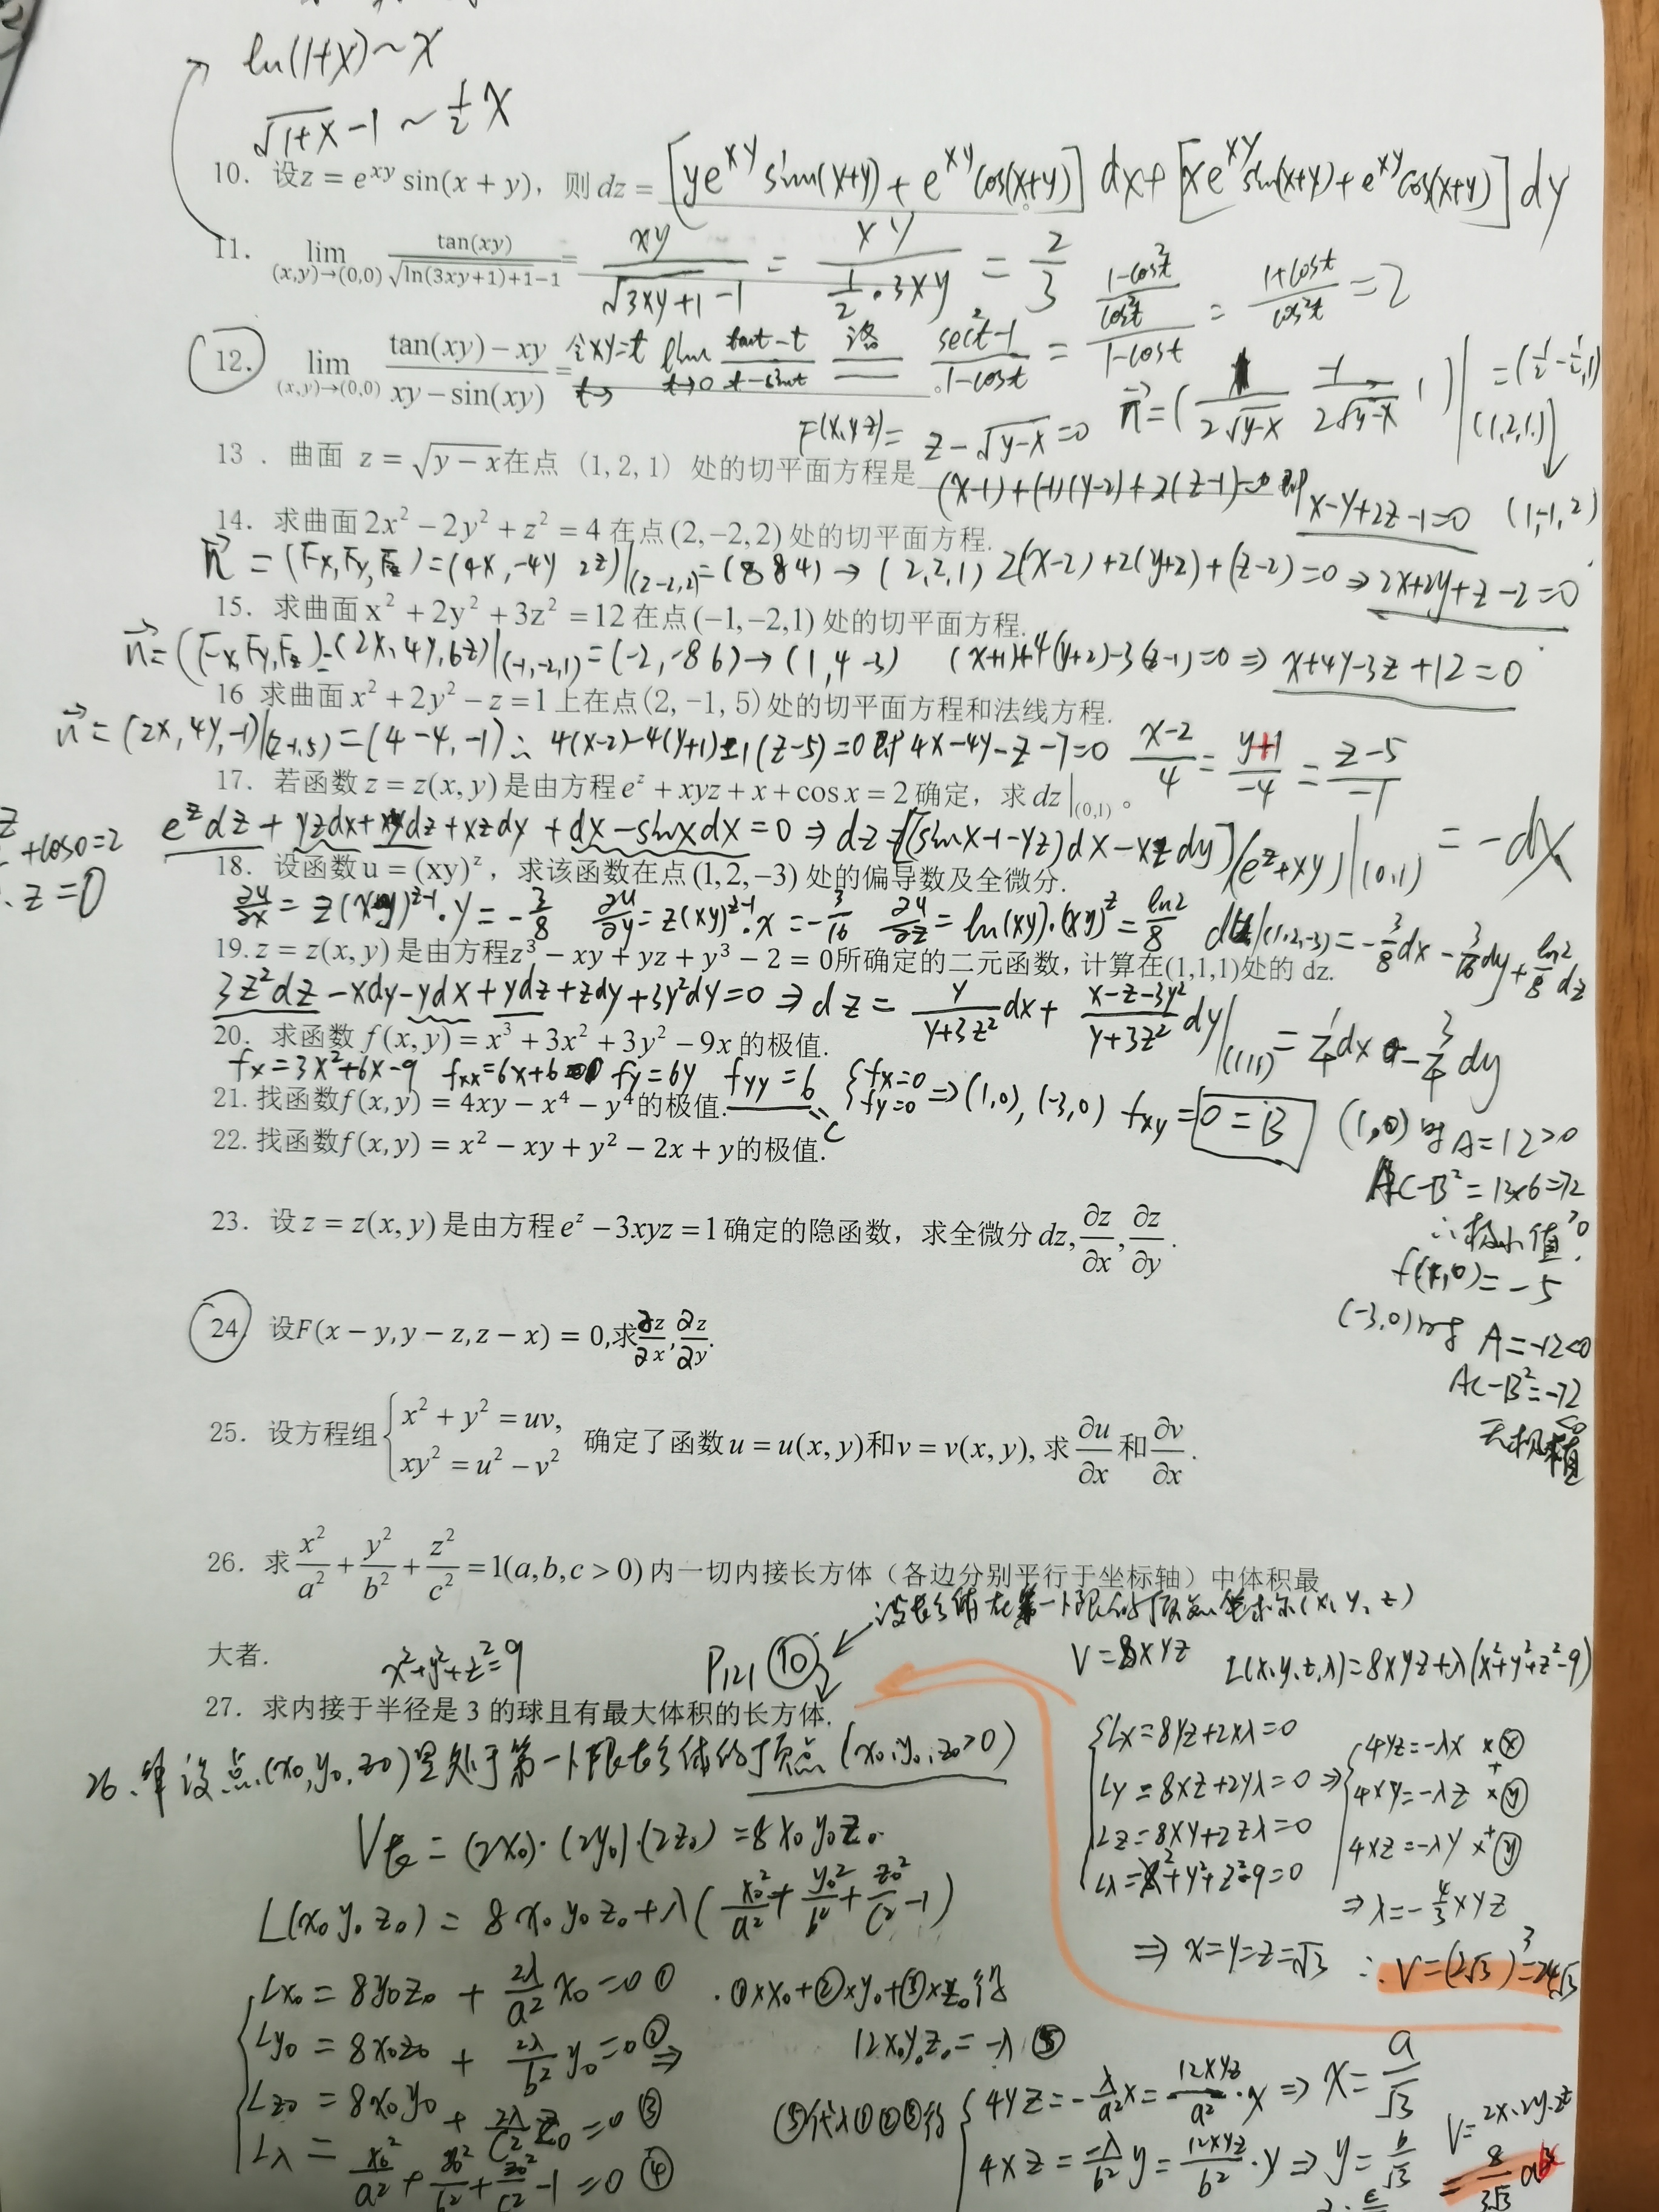 ln(1+x)~x
√(1+x) -1 ~ ½x
10. 设z = e^{xy} sin(x + y)，则 dz = [ye^{xy} sin(x+y) + e^{xy}cos(x+y)] dx + [xe^{xy}sin(x+y) + e^{xy}cos(x+y)] dy
11. lim_{(x,y)→(0,0)} tan(xy)/(√(ln(3xy+1)+1)-1) = xy/(√(3xy+1) -1) = xy/(½·3xy) = 2/3
12. lim_{(x,y)→(0,0)} (tan(xy) - xy)/(xy - sin(xy)) = 令xy=t lim_{t→0} (tant-t)/(t-sint) 洛 = (sec²t-1)/(1-cost) = ((1-cos²t)/cos²t)/(1-cost) = (1+cost)/cos²t = 2
F(x,y,z) = z-√(y-x)=0 n⃗=(1/(2√(y-x)), -1/(2√(y-x)), 1)|(1,2,1) = (½, -½, 1)
13．曲面 z = √(y - x)在点 (1, 2, 1) 处的切平面方程是
(x-1)+(-1)(y-2)+2(z-1)=0 即 x-y+2z-1=0 (1,-1,2)
14．求曲面 2x² - 2y² + z² = 4 在点(2, -2, 2) 处的切平面方程.
n⃗ = (Fx, Fy, Fz) = (4x, -4y 2z)|(2-2,2) = (8 8 4) → (2,2,1) 2(x-2)+2(y+2)+(z-2)=0 ⇒ 2x+2y+z-2=0
15．求曲面 x² + 2y² + 3z² = 12 在点(-1, -2,1) 处的切平面方程.
n⃗=(Fx,Fy,Fz)=(2x,4y,6z)|(-1,-2,1)=(-2,-8 6)→(1,4 -3) (x+1)+4(y+2)-3(z-1)=0 ⇒ x+4y-3z+12=0
16 求曲面 x² + 2y² - z = 1 上在点(2, -1, 5)处的切平面方程和法线方程.
n⃗ = (2x, 4y, -1)|(2-1,5) = (4 -4, -1) ∴ 4(x-2)-4(y+1)-1(z-5)=0 即 4x-4y-z-7=0 (x-2)/4 = (y+1)/-4 = (z-5)/-1
17．若函数 z = z(x, y) 是由方程 e^z + xyz + x + cos x = 2 确定，求 dz|(0,1)。
+cos0=2
∴ z=0
e^z dz + yzdx+xydz+xzdy + dx-sinxdx = 0 ⇒ dz = [(sinx-1-yz)dx-xzdy]/(e^z+xy)|(0,1) = -dx
18．设函数 u = (xy)^z，求该函数在点 (1, 2, -3) 处的偏导数及全微分.
∂u/∂x = z(xy)^{z-1}·y = -3/8 ∂u/∂y = z(xy)^{z-1}·x = -3/16 ∂u/∂z = ln(xy)·(xy)^z = ln2/8 du|(1,2,-3) = -3/8 dx - 3/16 dy + ln2/8 dz
19. z = z(x, y) 是由方程z³ - xy + yz + y³ - 2 = 0所确定的二元函数, 计算在(1,1,1)处的 dz.
3z²dz -xdy-ydx+ydz+zdy+3y²dy=0 ⇒ dz = y/(y+3z²) dx + (x-z-3y²)/(y+3z²) dy|(1,1,1) = ¼dx - ¾dy
20．求函数 f(x, y) = x³ + 3x² + 3y² - 9x 的极值.
fx=3x²+6x-9 fxx=6x+6 fy=6y fyy=6 {fx=0 fy=0 ⇒ (1,0), (-3,0) fxy = 0 = B
C
21. 找函数f(x, y) = 4xy - x⁴ - y⁴的极值.
22. 找函数f(x, y) = x² - xy + y² - 2x + y的极值.
(1,0)时 A=12>0
AC-B²=12×6=72>0
∴极小值.
f(1,0)=-5
(-3,0)时 A=-12<0
AC-B²=-72<0
无极值
23．设 z = z(x, y) 是由方程 e^z - 3xyz = 1 确定的隐函数，求全微分 dz, ∂z/∂x, ∂z/∂y.
24. 设F(x - y, y - z, z - x) = 0,求∂z/∂x, ∂z/∂y.
25．设方程组 {x² + y² = uv, xy² = u² - v² 确定了函数 u = u(x, y)和v = v(x, y), 求 ∂u/∂x 和 ∂v/∂x.
26．求 x²/a² + y²/b² + z²/c² = 1(a, b, c > 0) 内一切内接长方体（各边分别平行于坐标轴）中体积最
大者.
x²+y²+z²=9
P121 ⑩
27．求内接于半径是 3 的球且有最大体积的长方体.
V=8xyz L(x,y,z,λ)=8xyz+λ(x²+y²+z²-9)
{Lx=8yz+2xλ=0
Ly=8xz+2yλ=0
Lz=8xy+2zλ=0
Lλ=x²+y²+z²-9=0
⇒ {4yz=-λx ×ⓧ
4xy=-λz ×ⓨ
4xz=-λy ×ⓨ
⇒ λ=-4/3 xyz
⇒ x=y=z=√3 ∴V=(2√3)³=24√3
26. 设点(x₀,y₀,z₀)是处于第一卦限长方体的顶点 (x₀,y₀,z₀>0)
V长 = (2x₀)·(2y₀)·(2z₀) = 8x₀y₀z₀
L(x₀ y₀ z₀) = 8x₀y₀z₀ + λ(x₀²/a² + y₀²/b² + z₀²/c² - 1)
Lx₀ = 8y₀z₀ + 2λ/a² x₀ = 0 ①
Ly₀ = 8x₀z₀ + 2λ/b² y₀ = 0 ② ⇒
Lz₀ = 8x₀y₀ + 2λ/c² z₀ = 0 ③
Lλ = x₀²/a² + y₀²/b² + z₀²/c² - 1 = 0 ④
①×x₀+②×y₀+③×z₀得
12x₀y₀z₀ = -λ ⑤
⑤代入①②③得 {4yz = -λ/a² x = 12xyz/a² · x ⇒ x = a/√3
4xz = -λ/b² y = 12xyz/b² · y ⇒ y = b/√3
V=2x·2y·2z